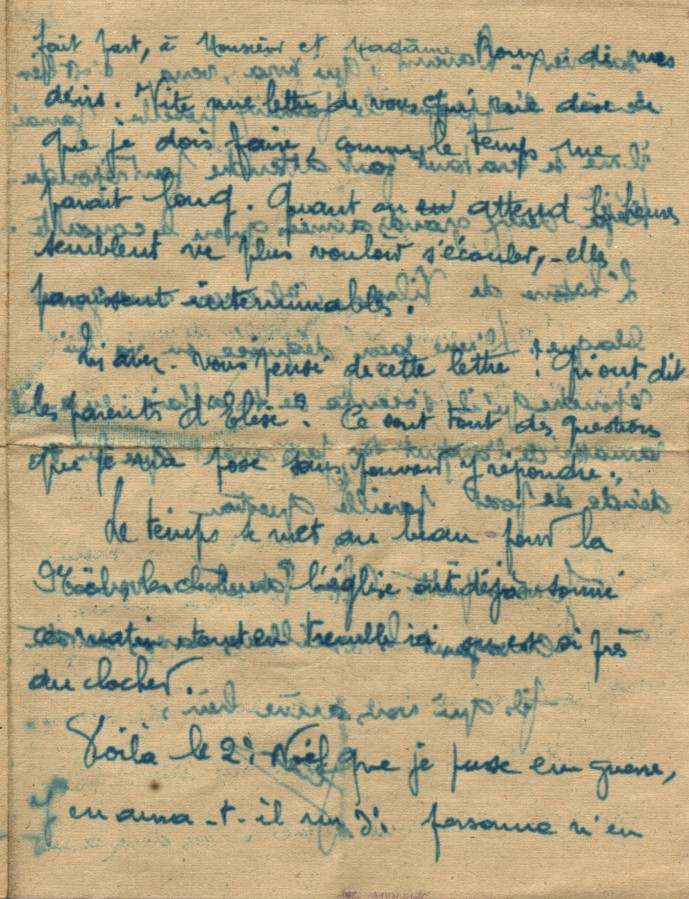 fait part, à Monsieur et Madame Roux, ici de mes
désirs. Vite une lettre de vous qui me dise ce
que je dois faire, comme le temps me
paraît long. Quant on en attend les heures
semblent ne plus vouloir s'écouler, - elles
paraissent interminables.
Qu'avez-vous pensé de cette lettre ! Qu'ont dit
les parents d'Elise. Ce sont tant des questions
que je me pose sans pouvoir y répondre.
Le temps se met au beau pour la
Noël, les cloches de l'église ont déjà sonné
ce matin, tout en tremble ici, on est si près
du clocher.
Voilà le 2è Noël que je passe en guerre,
Y en aura-t-il un 3è personne n'en